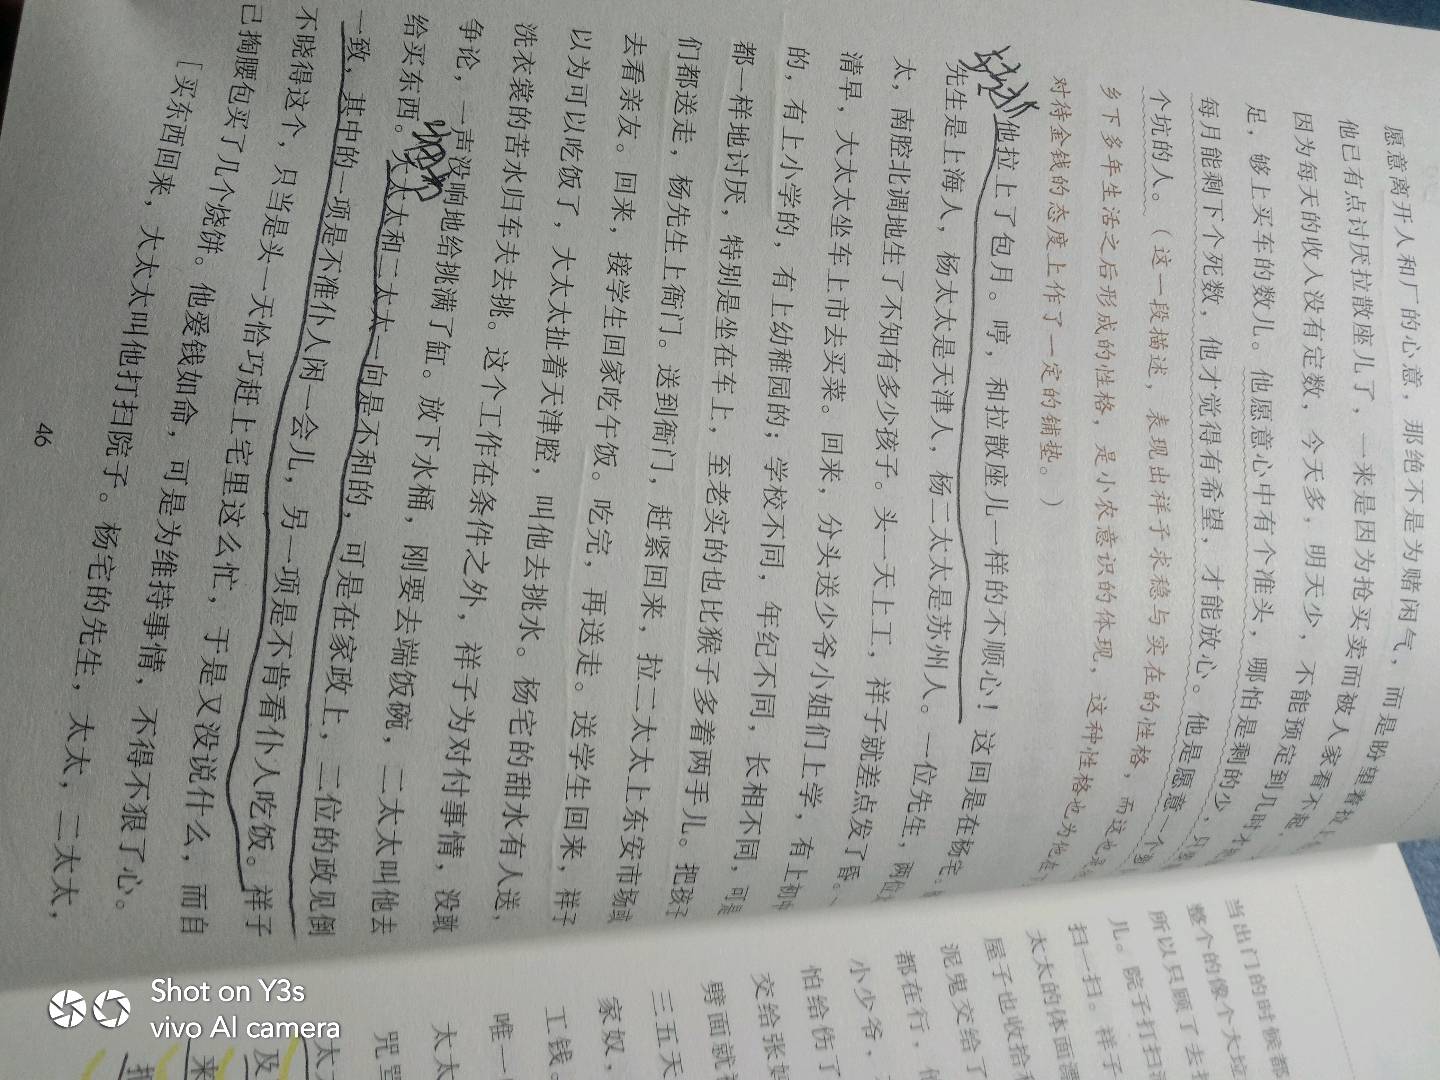 愿意离开人和厂的心意，那绝不是为赌闲气，而是盼望着拉上
他已有点讨厌拉散座儿了，一来是因为抢买卖而被人家看不起，
因为每天的收入没有定数，今天多，明天少，不能预定到几时才
足，够上买车的数儿。他愿意心中有个准头，哪怕是剩的少，只
每月能剩下个死数，他才觉得有希望，才能放心。他是愿意一个
个坑的人。（这一段描述，表现出祥子求稳与实在的性格，而这也是
乡下多年生活之后形成的性格，是小农意识的体现，这种性格也为他
对待金钱的态度上作了一定的铺垫。）
他拉上了包月。哼，和拉散座儿一样的不顺心！这回是在杨宅。
先生是上海人，杨太太是天津人，杨二太太是苏州人。一位先生，两位
太，南腔北调地生了不知有多少孩子。头一天上工，祥子就差点发了昏。
清早，大太太坐车上市去买菜。回来，分头送少爷小姐们上学，有上初中
的，有上小学的，有上幼稚园的；学校不同，年纪不同，长相不同，可是
都一样地讨厌，特别是坐在车上，至老实的也比猴子多着两手儿。把孩子
们都送走，杨先生上衙门。送到衙门，赶紧回来，拉二太太上东安市场或
去看亲友。回来，接学生回家吃午饭。吃完，再送走。送学生回来，祥子
以为可以吃饭了，大太太扯着天津腔，叫他去挑水。杨宅的甜水有人送，
洗衣裳的苦水归车夫去挑。这个工作在条件之外，祥子为对付事情，没敢
争论，一声没响地给挑满了缸。放下水桶，刚要去端饭碗，二太太叫他去
给买东西。大太太和二太太一向是不和的，可是在家政上，二位的政见倒
一致，其中的一项是不准仆人闲一会儿，另一项是不肯看仆人吃饭。祥子
不晓得这个，只当是头一天恰巧赶上宅里这么忙，于是又没说什么，而自
己掏腰包买了几个烧饼。他爱钱如命，可是为维持事情，不得不狠了心。
[买东西回来，大太太叫他打扫院子。杨宅的先生，太太，二太太，
46
当出门的时候都
整个的像个大垃
所以只顾了去打
儿。院子打扫清
扫一扫。祥子
太太的体面漂
屋子也收拾利
泥鬼交给了
都在行，他
小少爷，
怕给伤了
交给张妈
劈面就
三五天
家奴，
工钱。
唯一
太太
咒骂
太太
及
来
Shot on Y3s
vivo AI camera